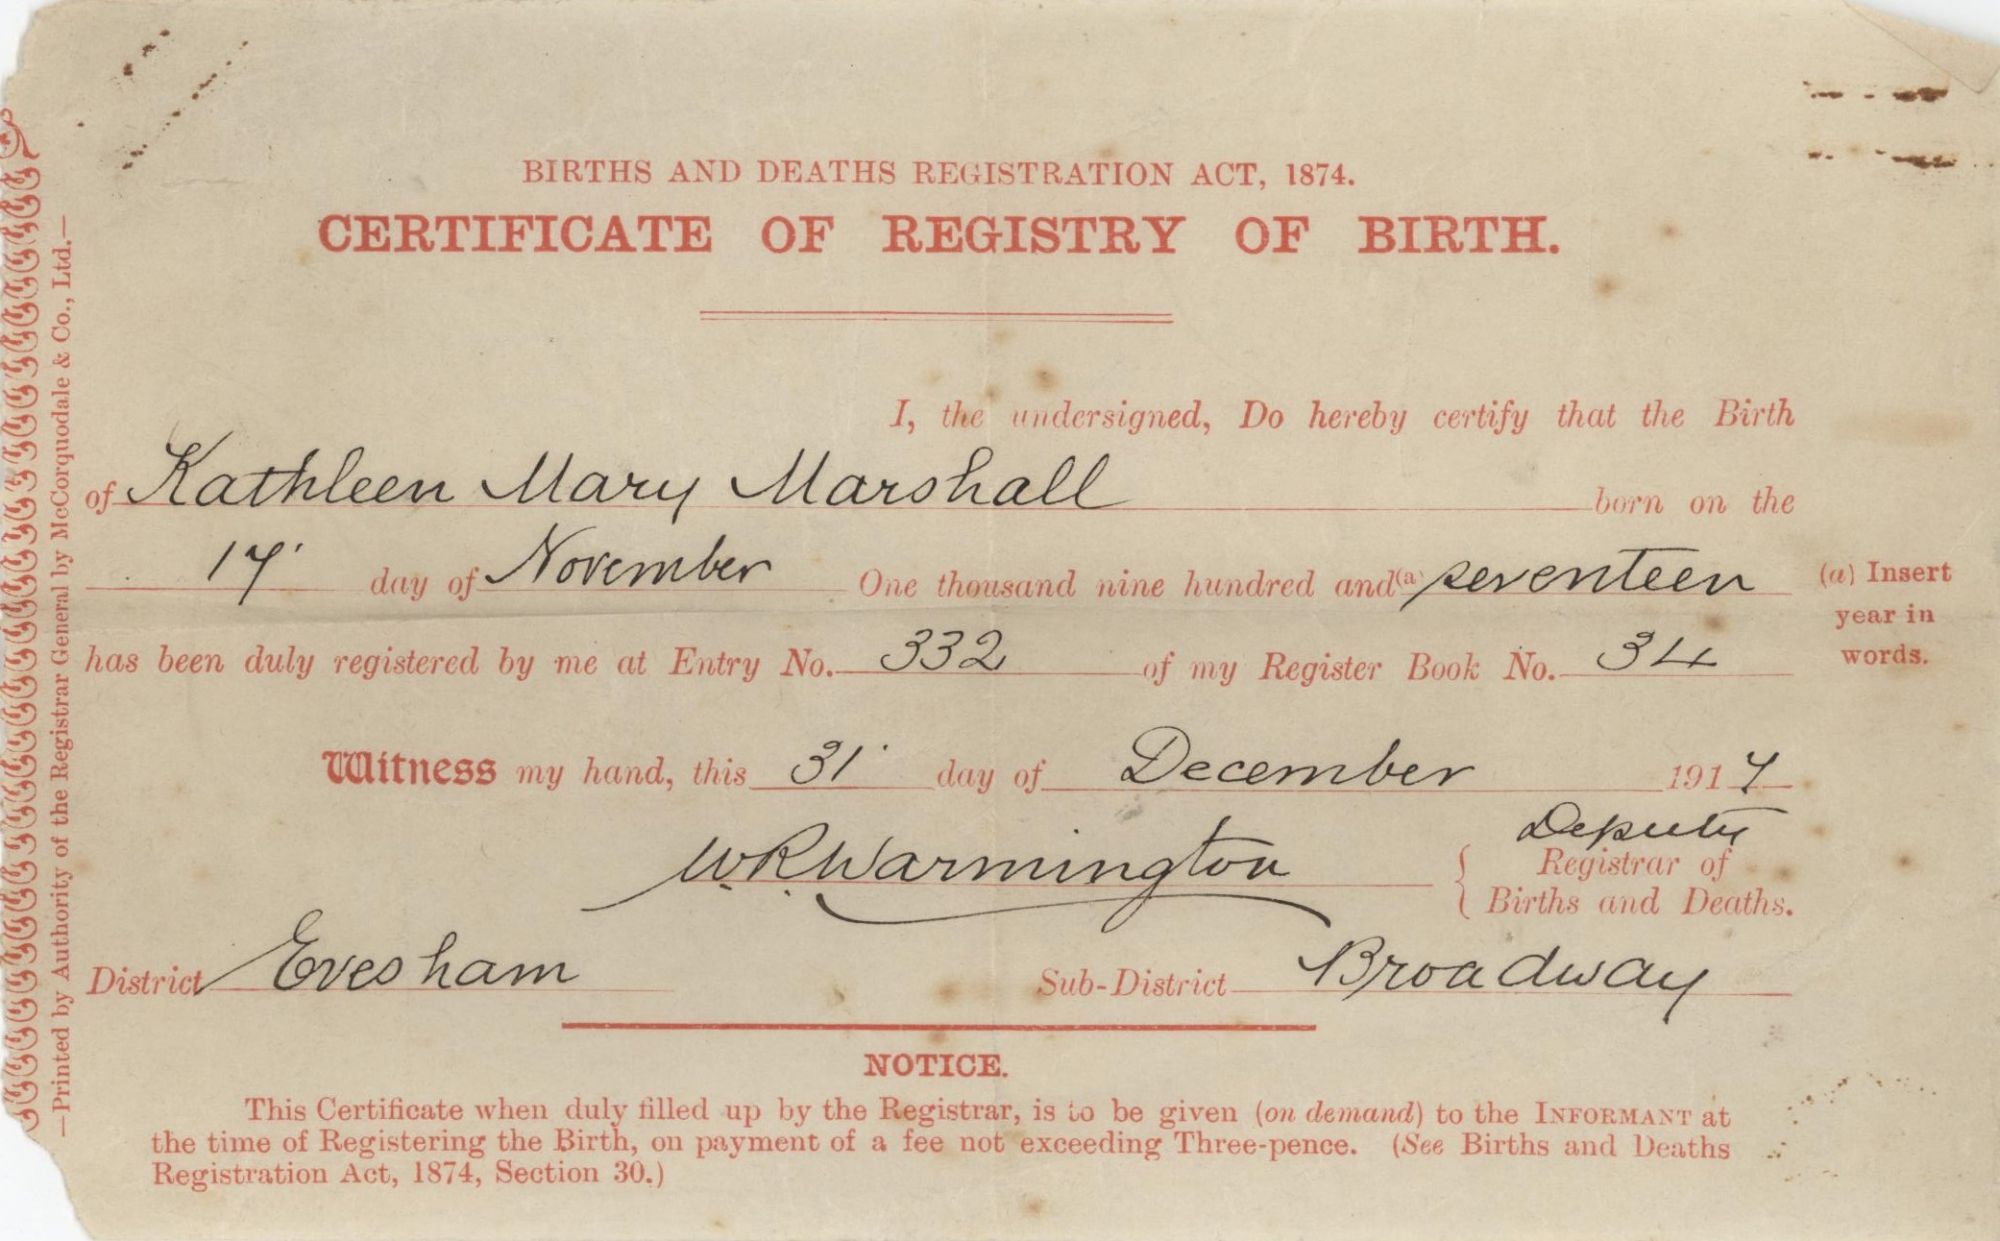 BIRTHS AND DEATHS REGISTRATION ACT, 1874.
CERTIFICATE OF REGISTRY OF BIRTH.
I, the undersigned, Do hereby certify that the Birth
of Kathleen Mary Marshall born on the
17 day of November One thousand nine hundred and (a) seventeen
(a) Insert
year in
words.
has been duly registered by me at Entry No. 332 of my Register Book No. 34
Witness my hand, this 31 day of December 1917
W.R. Warmington
Deputy
Registrar of
Births and Deaths.
District Evesham Sub-District Broadway
NOTICE.
This Certificate when duly filled up by the Registrar, is to be given (on demand) to the INFORMANT at
the time of Registering the Birth, on payment of a fee not exceeding Three-pence. (See Births and Deaths
Registration Act, 1874, Section 30.)
—Printed by Authority of the Registrar General by McCorquodale & Co., Ltd.—